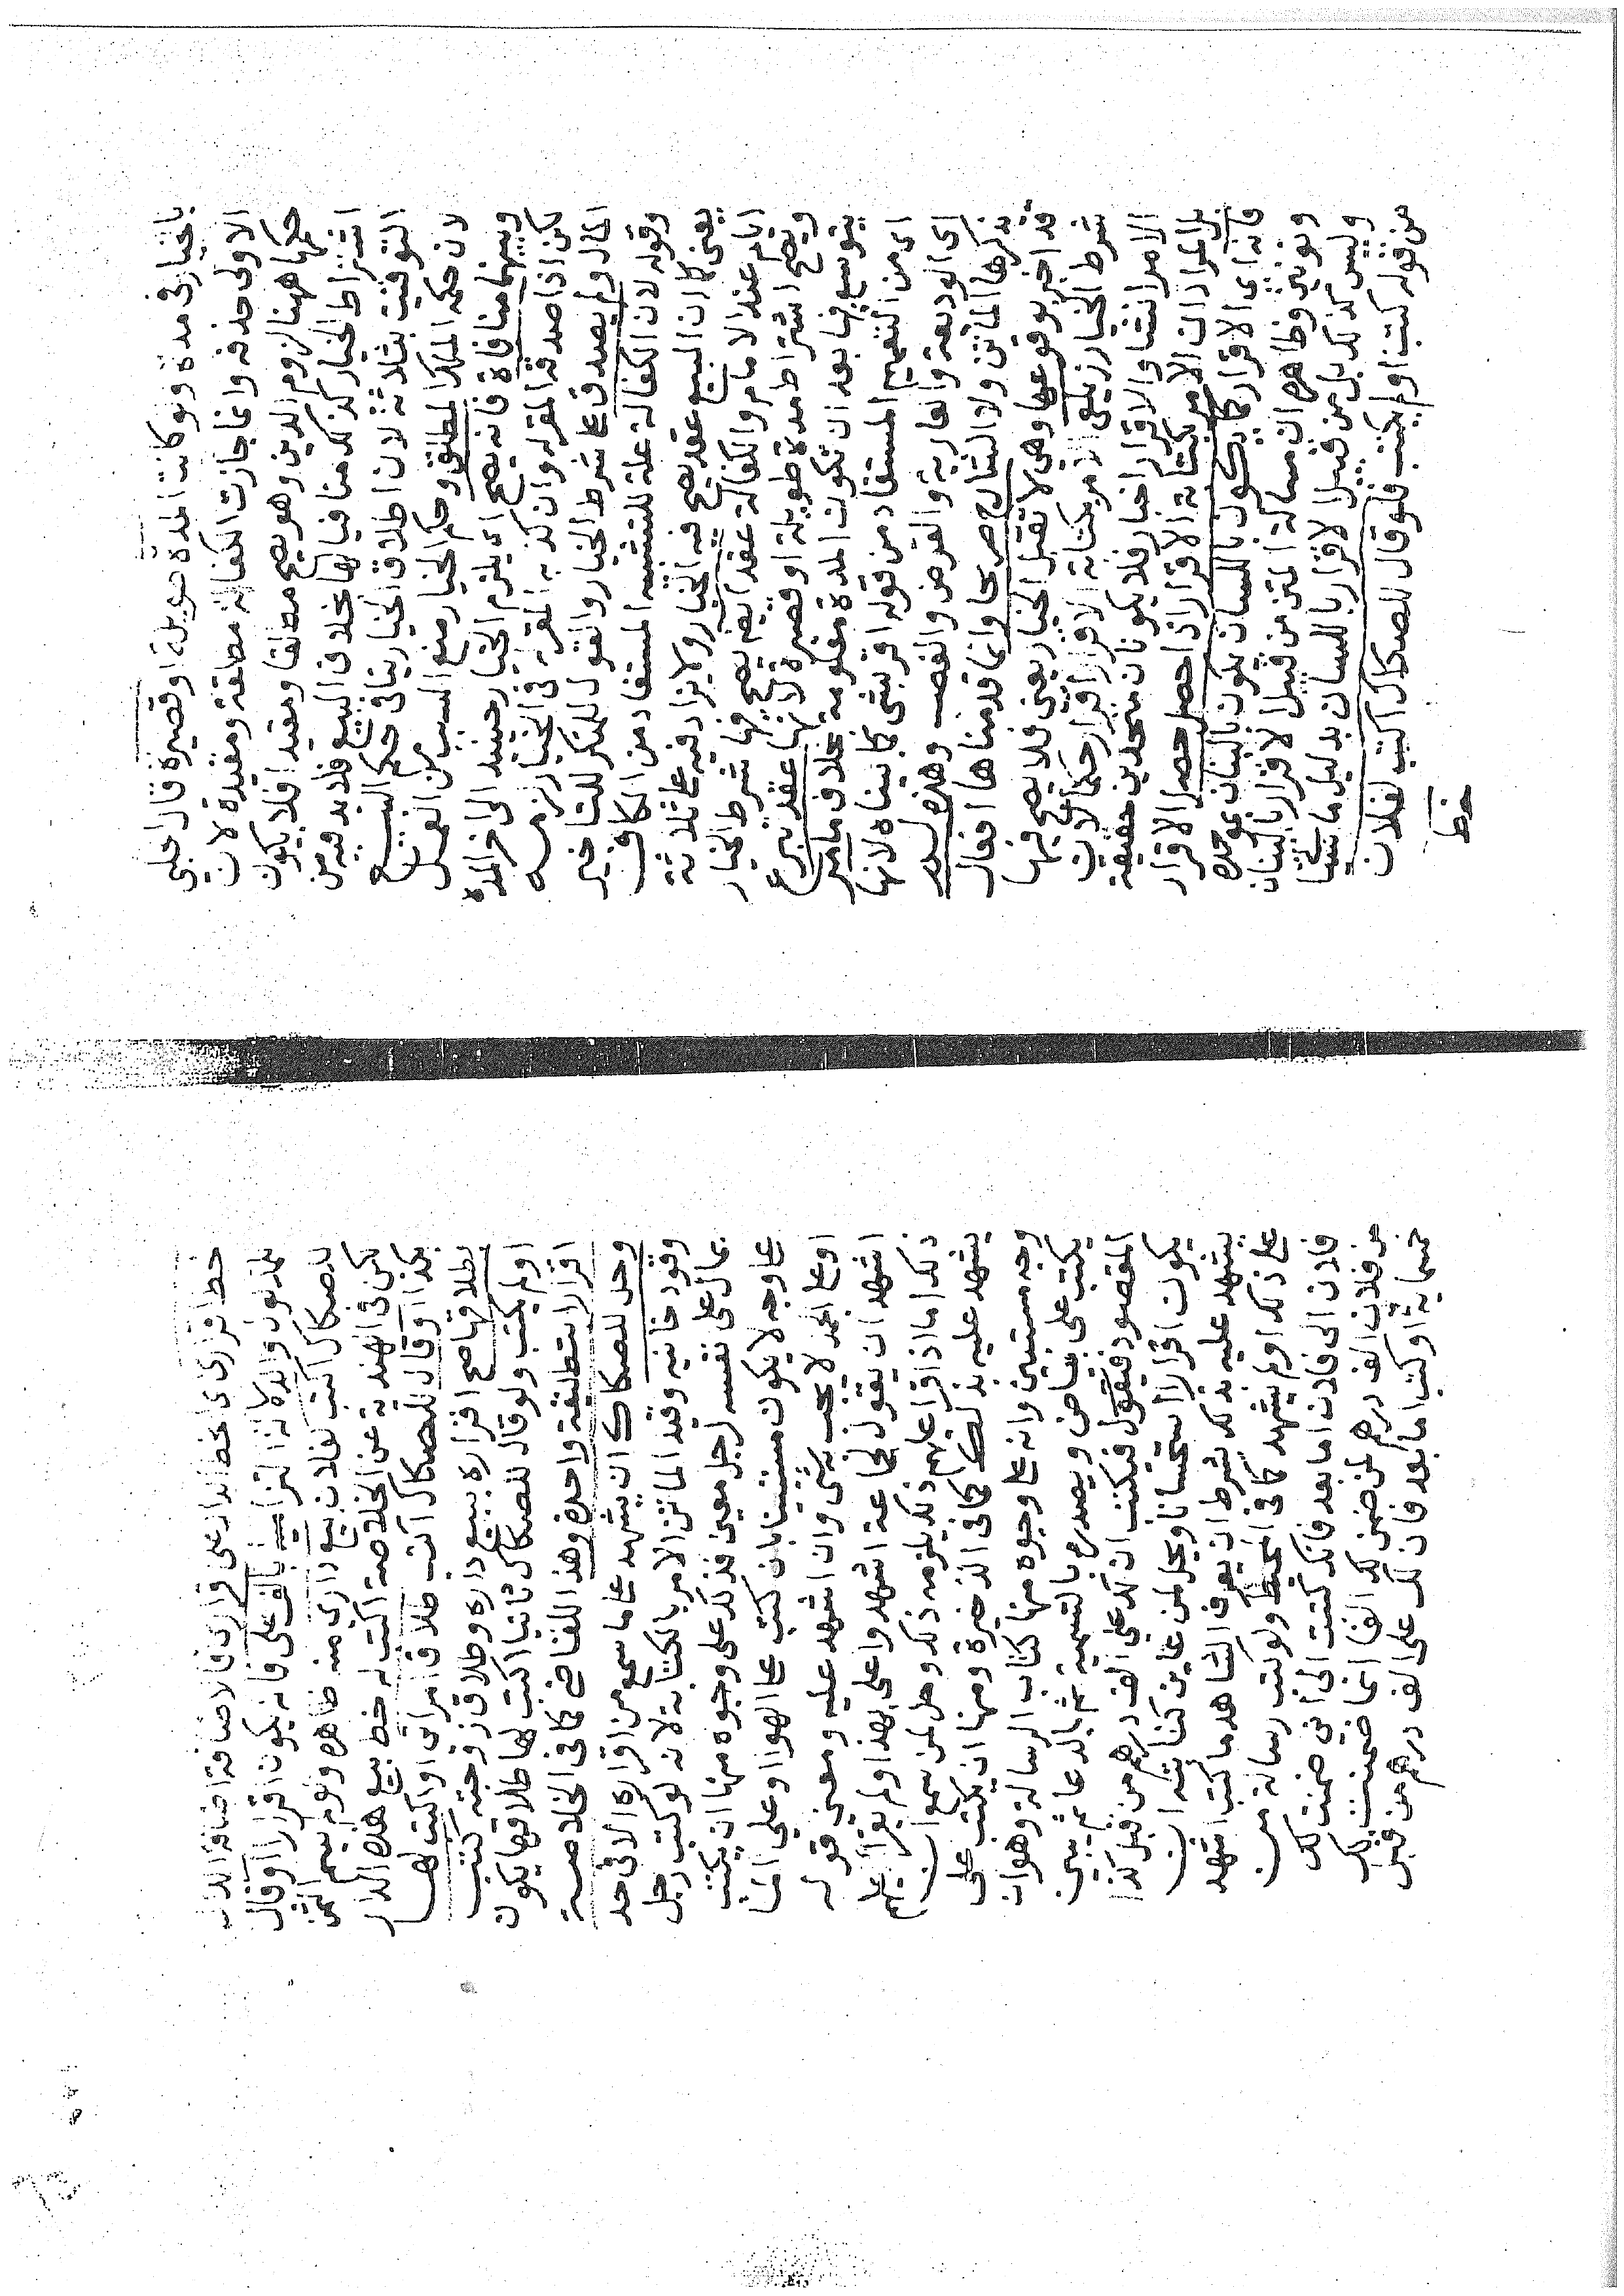 بالخيار في مدة ولو كانت المدة طويلة او قصيرة قال الحلبي
الاولى حذفه وانما جازت الكفالة مطلقة ومقيدة لان
حكمها ههنا لزوم الدين وهو يصح مطلقا ومقيدا فلا يكون
اشتراط الخيار كذلك منافيا لها بخلاف البيع فلا بد فيه من
التوقيت بثلاثة لان اطلاق الخيار ينافي حكم البيع
لان حكمه الملك المطلق وحكم الخيار منع السبب من العمل
وبينهما منافاة فانه يصح اي يلزم الخيار حينئذ الى اخر المدة
لكن اذا صدقه المقر له وان كذبه المقر له في الخيار لزمه
المال ولم يصدق على شرط الخيار والقول للمنكر للتاخير
وقوله لان الكفالة علة للتشبيه المستفاد من الكاف
يعني كما ان البيع عقد يصح فيه الخيار ولا يزاد فيه على ثلاثة
ايام عند الامام والكفالة عقد ايضا يصح فيها شرط الخيار
ويصح اشتراط مدة طويلة او قصيرة لانها عقد تبرع
يتوسع فيها بعد ان تكون المدة معلومة بخلاف ما مر
اي من التفهيم المستفاد من قوله اقر بشي كما بيناه لانها
اي الوديعة والعارية والقرض والغصب وهذه لم
يذكرها الماتن ولا الشارح صريحا وانما قدمناها افعال
قد اخبر بوقوعها وهي لا تقبل الخيار يعني فلا يصح فيها
شرط الخيار زيلعي الامر بكتابة الاقرار اقرار حكما لان
الامر انشا والاقرار اخبار فلا يكونان متحدين حقيقة
بل المراد ان الامر بكتابة الاقرار اذا حصل حصل الاقرار
فانه اي الاقرار كما يكون باللسان يكون بالبنان بموحدة
ونونين وظاهره ان مسألة المتن من قبيل الاقرار بالبنان
وليس كذلك بل من قبيل الاقرار باللسان بدليل ما ياتي
من قوله كتب او لم يكتب فلو قال للصكاك اكتب لفلان
خط
خط اقراري اي بخط الدار على قراري فالاضافة اضافة الدال
للمدلول والدلالة التزامية بالف على فانه يكون اقرارا او قال
للصكاك اكتب لفلان بيع داري منه ظاهره ولو لم يسم الثمن
لكن في الهندية عن الخلاصة اكتب له خط بيع هذه الدار
بكذا او قال للصكاك اكتب طلاق امراتي او اكتب لها
طلاقها صح اقراره ببيع داره وطلاق زوجته كتب
او لم يكتب ولو قال للصكاك ثانيا اكتب لها طلاقها يكون
اقرارا بتطليقة واحدة وهذا اللفاضح كما في الخلاصة
وحل للصكاك ان يشهد على ما سمع من اقراره الا في حد
وقود خانيه وقيد الماتن الامر بالكتابة لانه لو كتب رجل
بمال على نفسه لرجل معين فذلك على وجوه منها ان يكتب
على وجه لا يكون مستبينا بان كتب على الهوا او على الما
او على الجمد لا يجب به شي وان اشهد عليه ومعنى قوله
اشهد ان يقول لجماعة اشهدوا علي بهذا ولم يقرأ عليهم
ذلك اما اذا قرا عليهم ذلك يلزمه ذلك وحل لمن سمع ان
يشهد عليه بذلك كما في الذخيرة ومنها ان يكتب على
وجه مستبين وانه على وجوه منها كتاب الرسالة وهو ان
يكتب على بياض ويصدره بالتسمية ثم بالدعا ثم يبين
المقصود فيقول فيكتب ان لك علي الف درهم من قبل كذا
يكون اقرارا استحسانا ويحل لمن عاين كتابته ان
يشهد عليه بذلك بشرط ان يعرف الشاهد ما كتب اشهد
على ذلك او لم يشهد كما في المحيط ولو كتب رسالة من
فلان الى فلان اما بعد فانك كتبت الى اني ضمنت لك
عن فلان الف درهم لم اضمن لك الفا انما ضمنت لك
خمسماية او كتب اما بعد فان لك علي الف درهم من قبل